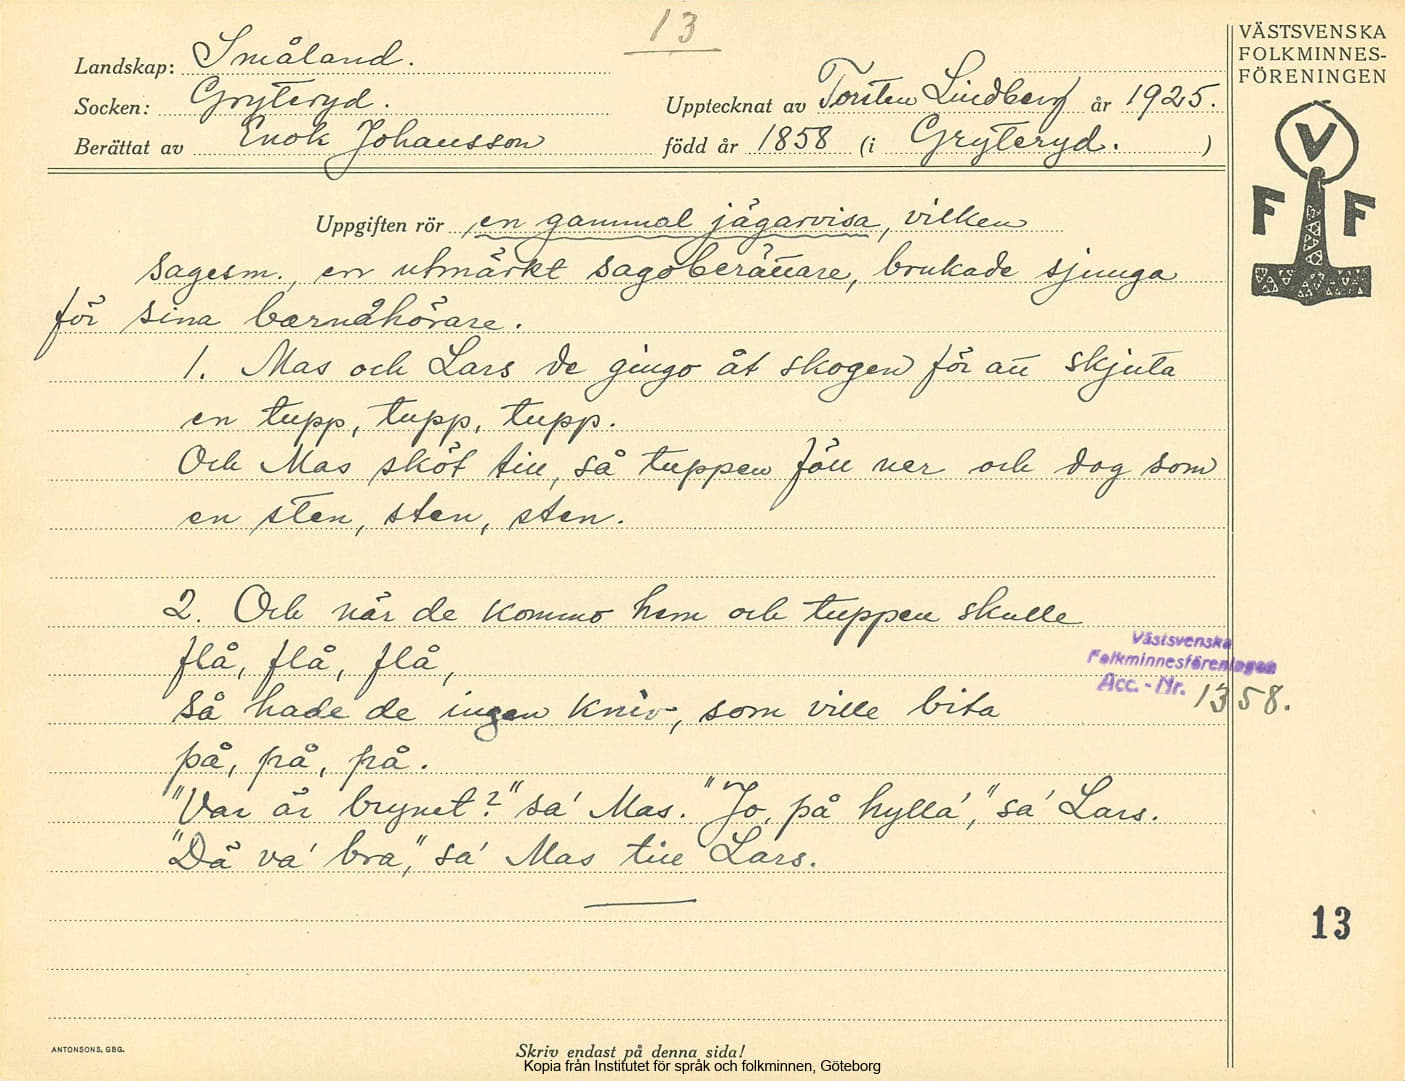 13
Landskap: Småland.
Socken: Gryteryd.
Upptecknat av Torsten Lindberg år 1925.
Berättat av Enok Johansson född år 1858 (i Gryteryd. )
VÄSTSVENSKA
FOLKMINNES-
FÖRENINGEN
V
F F
Uppgiften rör en gammal jägarvisa, vilken
sagesm., en utmärkt sagoberättare, brukade sjunga
för sina barnåhörare.
1. Mas och Lars de gingo åt skogen för att skjuta
en tupp, tupp, tupp.
Och Mas sköt till, så tuppen föll ner och dog som
en sten, sten, sten.
2. Och när de kommo hem och tuppen skulle
flå, flå, flå,
så hade de ingen kniv, som ville bita
på, på, på.
"Var är brynet?" sa' Mas. "Jo, på hylla'," sa' Lars.
"Dä va' bra," sa' Mas till Lars.
Västsvenska
Folkminnesföreningen
Acc. - Nr. 1358.
13
ANTONSONS, GBG.
Skriv endast på denna sida!
Kopia från Institutet för språk och folkminnen, Göteborg